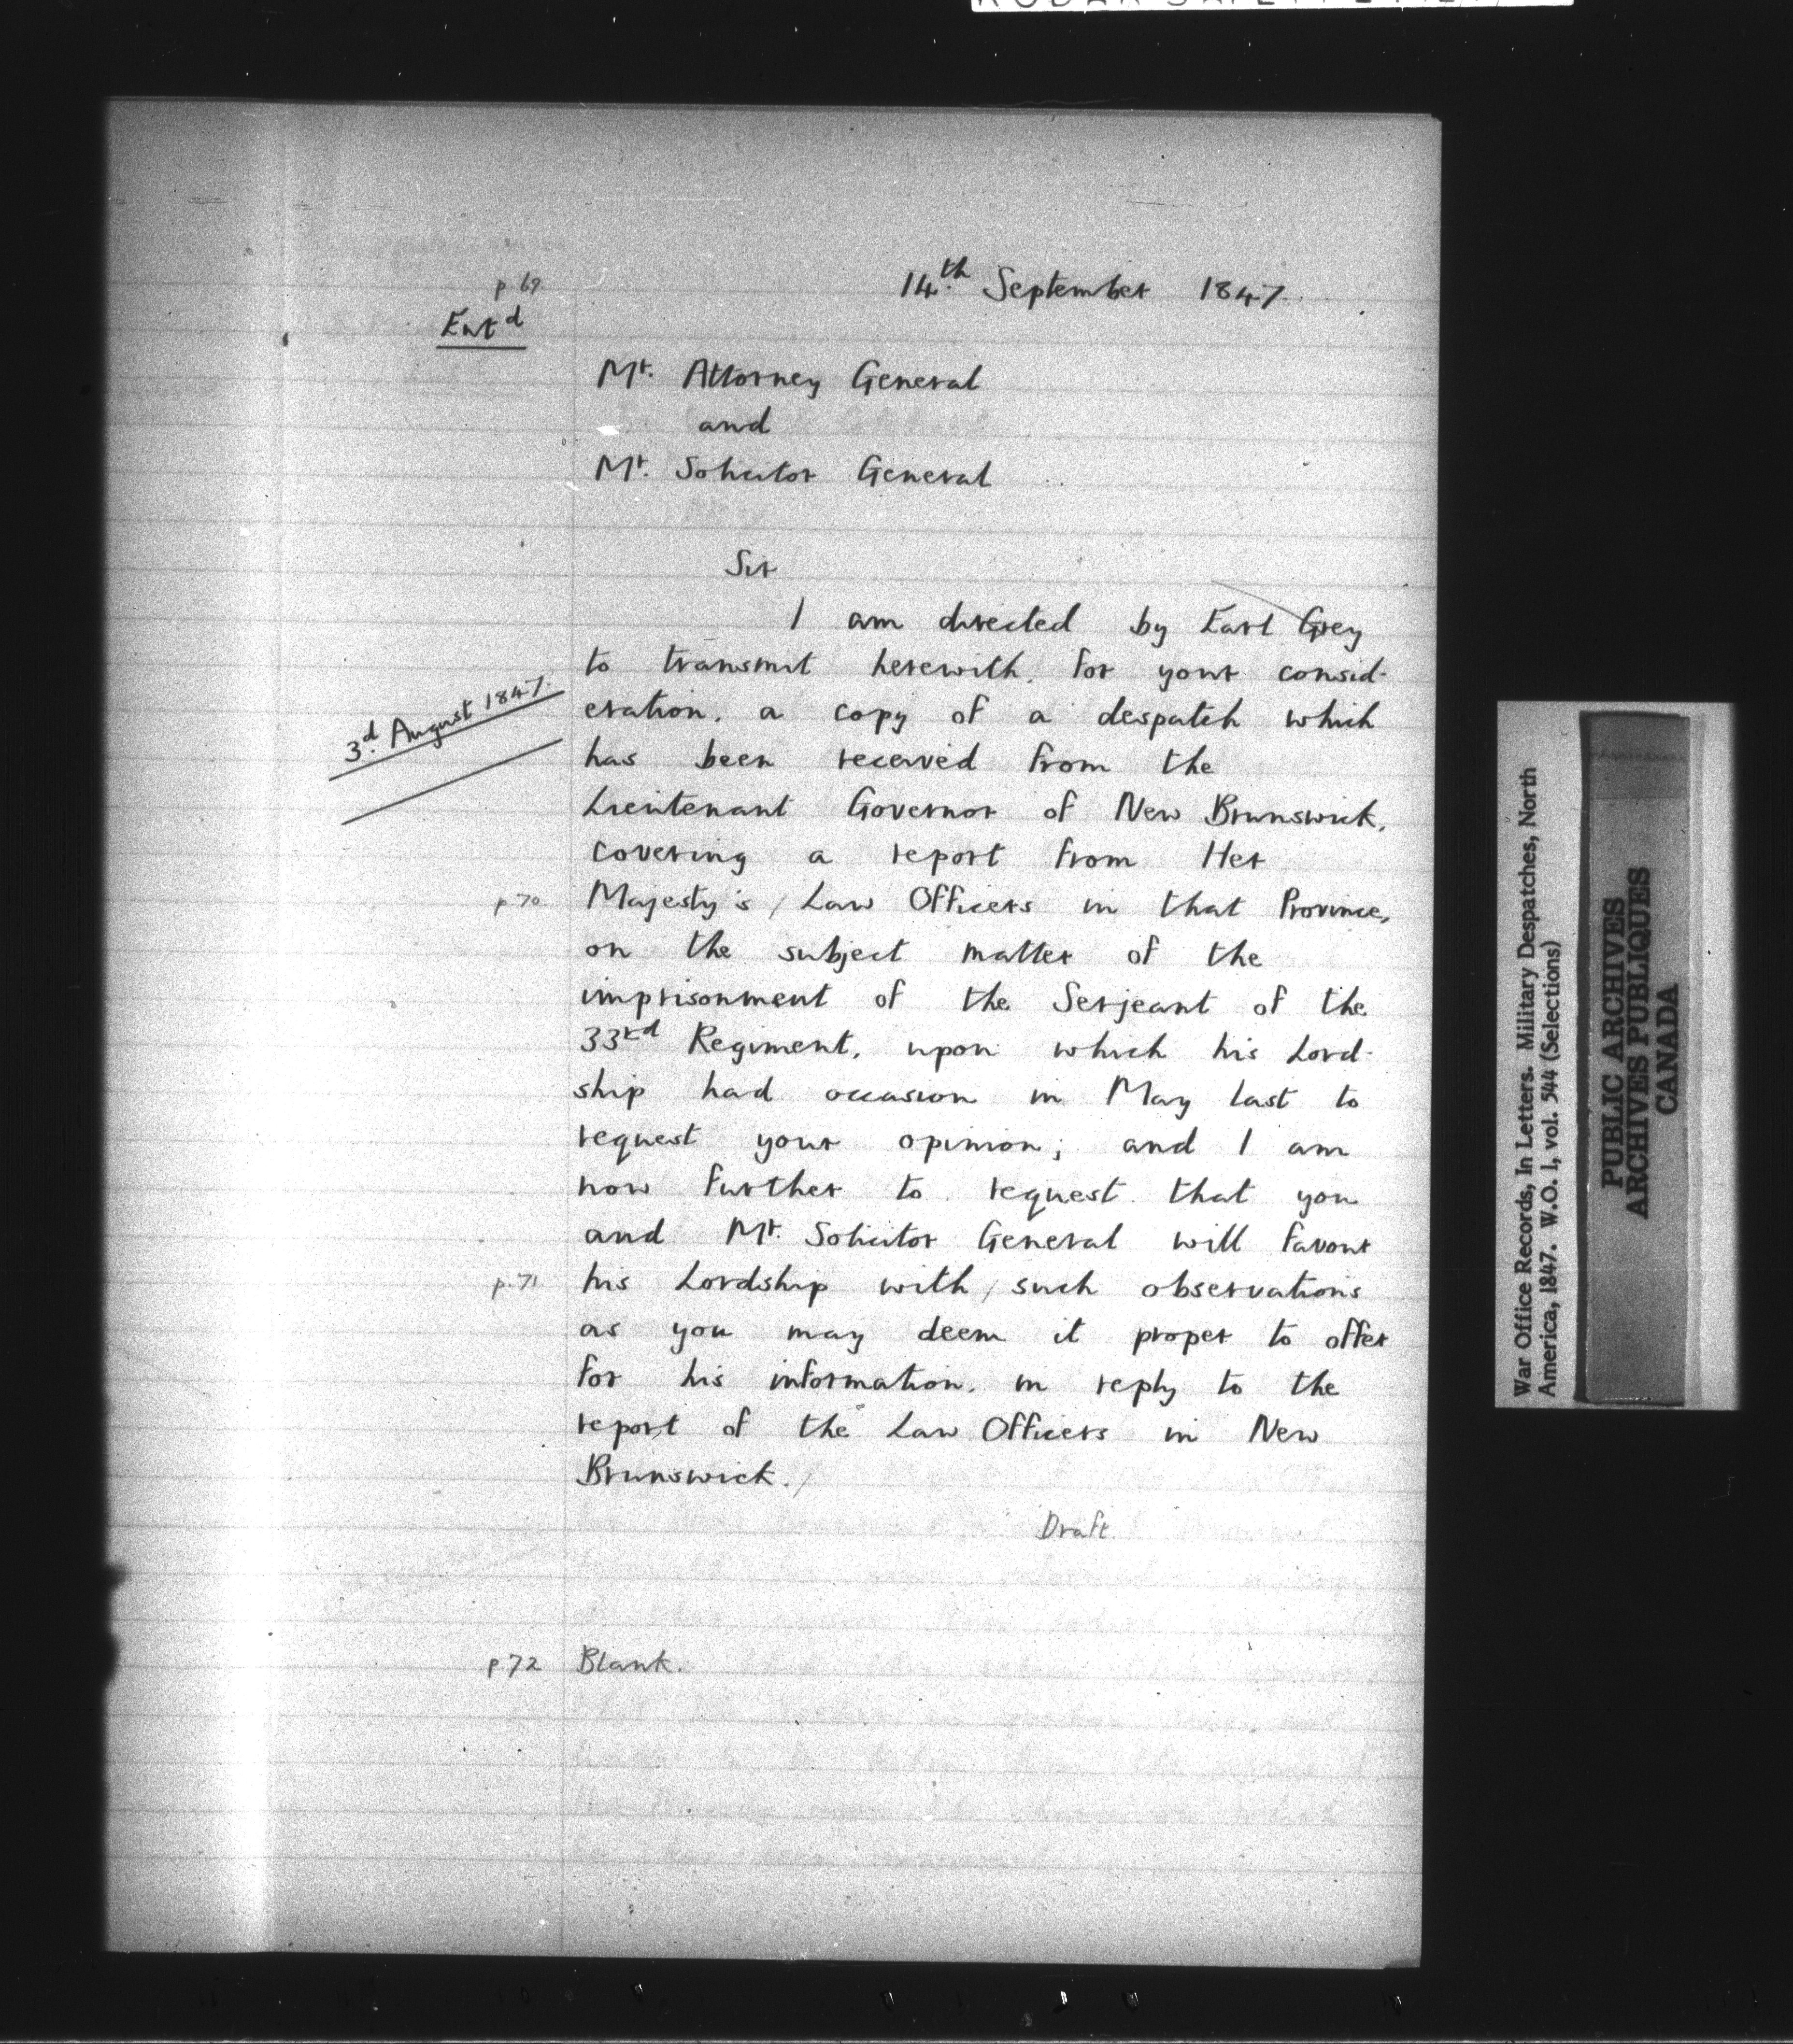 p 69
14.th September 1847.
Entd
Mr. Attorney General
and
Mr. Solicitor General
Sir
I am directed by Earl Grey
to transmit herewith, for your consid-
3d. August 1847.
eration, a copy of a despatch which
has been received from the
Lieutenant Governor of New Brunswick,
covering a report from Her
p 70 Majesty's / Law Officers in that Province,
on the subject matter of the
imprisonment of the Serjeant of the
33rd Regiment, upon which his Lord-
ship had occasion in May last to
request your opinion; and I am
now further to request that you
and Mr. Solicitor General will favour
p.71 his Lordship with / such observations
as you may deem it proper to offer
for his information, in reply to the
report of the Law Officers in New
Brunswick./
Draft.
p.72 Blank.
War Office Records, In Letters. Military Despatches, North
America, 1847. W.O. 1, vol. 544 (Selections)
PUBLIC ARCHIVES
ARCHIVES PUBLIQUES
CANADA